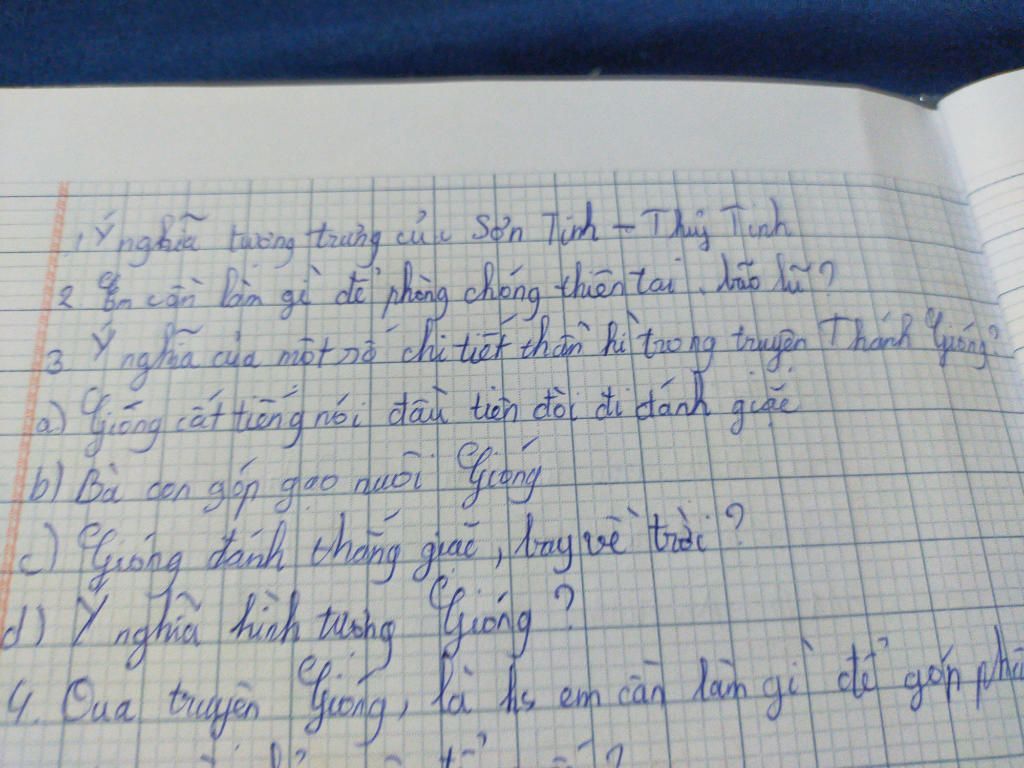 1, Ý nghĩa tượng trưng của Sơn Tinh - Thủy Tinh
2. Em cần làm gì để phòng chống thiên tai, bão lũ?
3. Ý nghĩa của một số chi tiết thần kì trong truyện Thánh Gióng?
a) Gióng cất tiếng nói đầu tiên đòi đi đánh giặc
b) Bà con góp gạo nuôi Gióng
c) Gióng đánh thắng giặc, bay về trời?
d) Ý nghĩa hình tượng Gióng?
4. Qua truyện Gióng, là hs em cần làm gì để góp